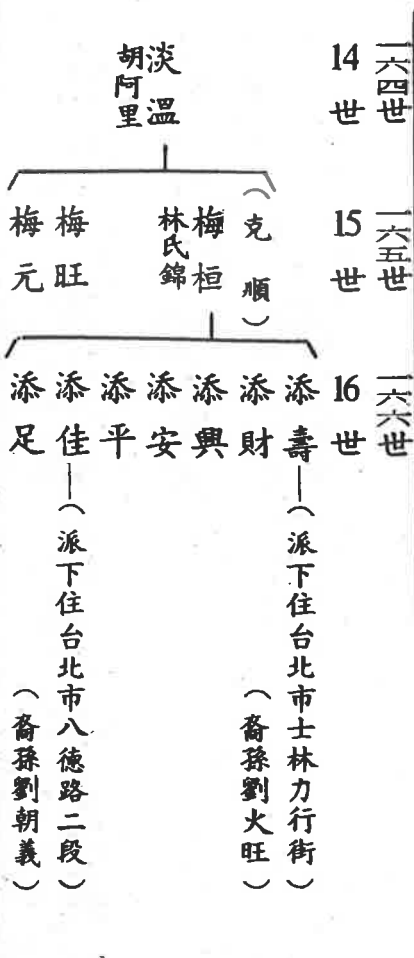 一六四世
14世
淡溫
胡阿里
一六五世
15世
（克順）
梅桓
林氏錦
梅旺
梅元
一六六世
16世
添壽—（派下住台北市士林力行街）
（裔孫劉火旺）
添財
添興
添安
添平
添佳—（派下住台北市八德路二段）
（裔孫劉朝義）
添足